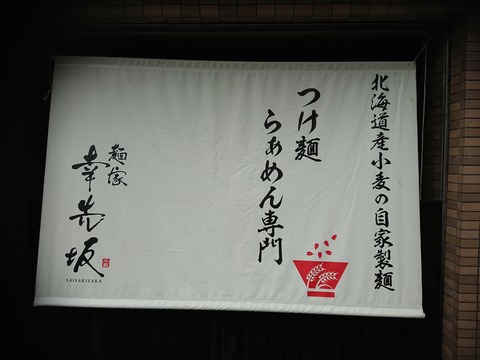 北海道産小麦の自家製麺
つけ麺
らぁめん専門
麺家
幸先坂
SAISAKIZAKA